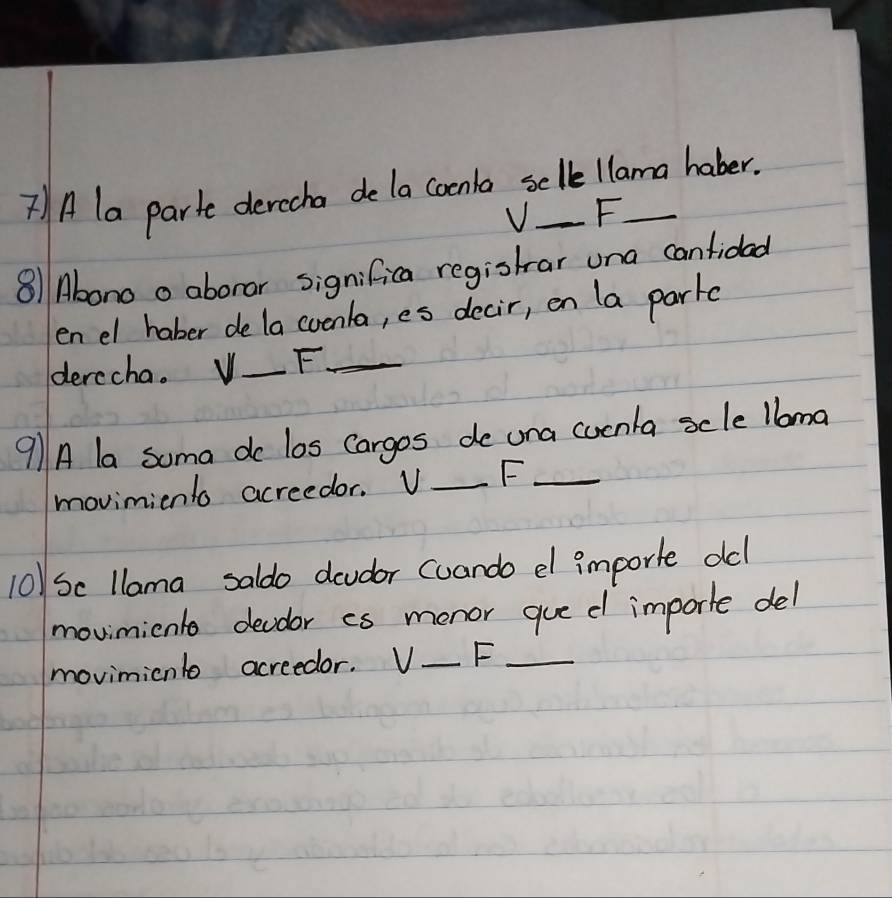 7) A la parte derecha de la cuenta se le llama haber.
V__ F__
8) Abono o abonar significa registrar una cantidad
en el haber de la cuenta, es decir, en la parte
derecha. V__ F__
9) A la suma de los cargos de una cuenta se le llama
movimiento acreedor. V__ F__
10) Se llama saldo deudor cuando el importe del
movimiento deudor es menor que el importe del
movimiento acreedor. V__ F__